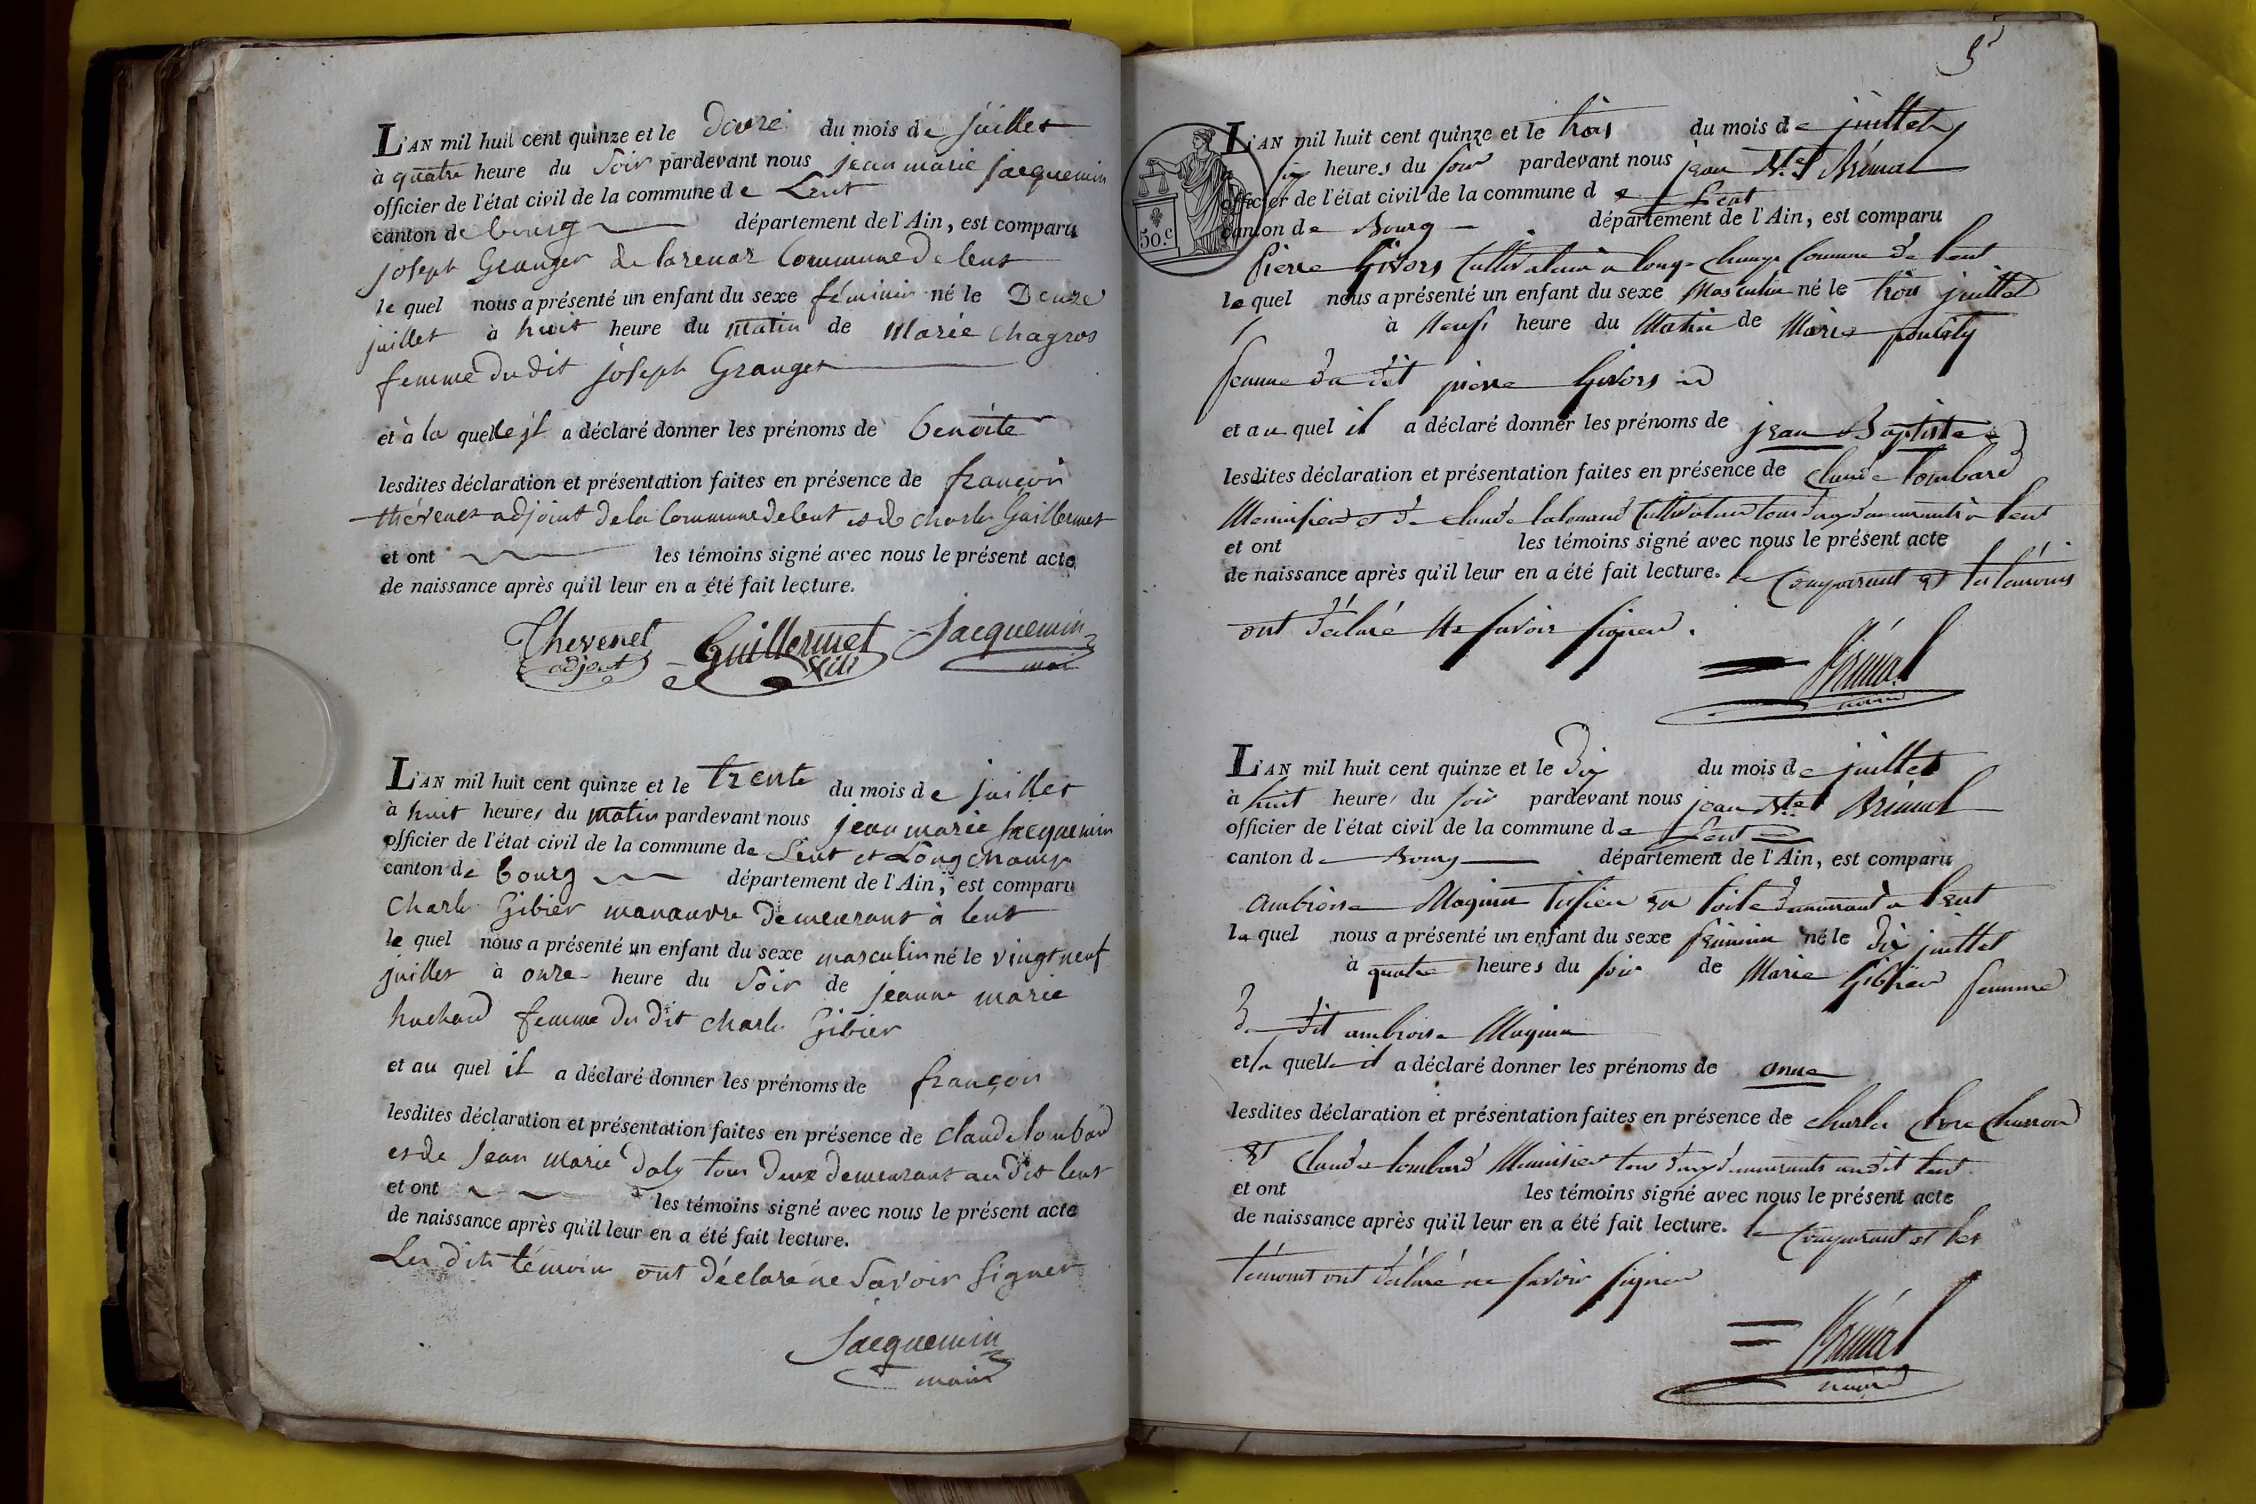 L'AN mil huit cent quinze et le douze du mois de juillet
à quatre heure du Soir pardevant nous jean marie jacquemin
officier de l'état civil de la commune de Lent
canton de bourg département de l'Ain, est comparu
joseph Granger de Commune de lent
le quel nous a présenté un enfant du sexe féminin né le Douze
juillet à huit heure du matin de Marie chagros
femme du dit joseph Granger
et à la quelle il a déclaré donner les prénoms de benoite
lesdites déclaration et présentation faites en présence de françois
thevenet adjoint de la Commune de lent et de charle Guillermet
et ont les témoins signé avec nous le présent acte
de naissance après qu'il leur en a été fait lecture.
Thevenet Guillermet Jacquemin
adjoint maire
L'AN mil huit cent quinze et le trente du mois de juillet
à huit heures du matin pardevant nous jean marie jacquemin
officier de l'état civil de la commune de Lent et Longchamp
canton de bourg département de l'Ain, est comparu
charle Gibier manauvre demeurant à lent
le quel nous a présenté un enfant du sexe masculin né le vingt neuf
juillet à onze heure du Soir de jeanne marie
huchard femme du dit charle Gibier
et au quel il a déclaré donner les prénoms de françois
lesdites déclaration et présentation faites en présence de claude lombard
et de jean marie Doly tous deux demeurant au dit lent
et ont les témoins signé avec nous le présent acte
de naissance après qu'il leur en a été fait lecture.
Les dits témoins ont déclaré ne Savoir Signer
Jacquemin
maire
5
L'AN mil huit cent quinze et le trois du mois de juillet
à six heures du soir pardevant nous jean Mie Brémal
officier de l'état civil de la commune de Lent
canton de Bourg département de l'Ain, est comparu
50.c
pierre Givors Cultivateur a long-Champ Comune de lent
le quel nous a présenté un enfant du sexe Masculin né le trois juillet
à Neuf heure du Matin de Marie
femme du dit pierre Givors
et au quel il a déclaré donner les prénoms de jean Baptiste
lesdites déclaration et présentation faites en présence de claude lombard
Menuisier et de claude Cultivateur tous deux demeurants a lent
et ont les témoins signé avec nous le présent acte
de naissance après qu'il leur en a été fait lecture. le Comparant et les temoins
ont déclaré Ne savoir signer.
Brémal
maire
L'AN mil huit cent quinze et le dix du mois de juillet
à huit heures du soir pardevant nous jean Mie Brémal
officier de l'état civil de la commune de Lent
canton de Bourg département de l'Ain, est comparu
ambroise Magnin tissier en toile demeurant a lent
le quel nous a présenté un enfant du sexe féminin né le dix juillet
à quatre heures du soir de Marie femme
du dit ambroise Magnin
et la quelle il a déclaré donner les prénoms de anne
lesdites déclaration et présentation faites en présence de charles Charron
et Claude lombard Menuisier tous deux demeurants au dit lent
et ont les témoins signé avec nous le présent acte
de naissance après qu'il leur en a été fait lecture. le Comparant et les
témoins ont déclaré ne savoir signer
Brémal
maire